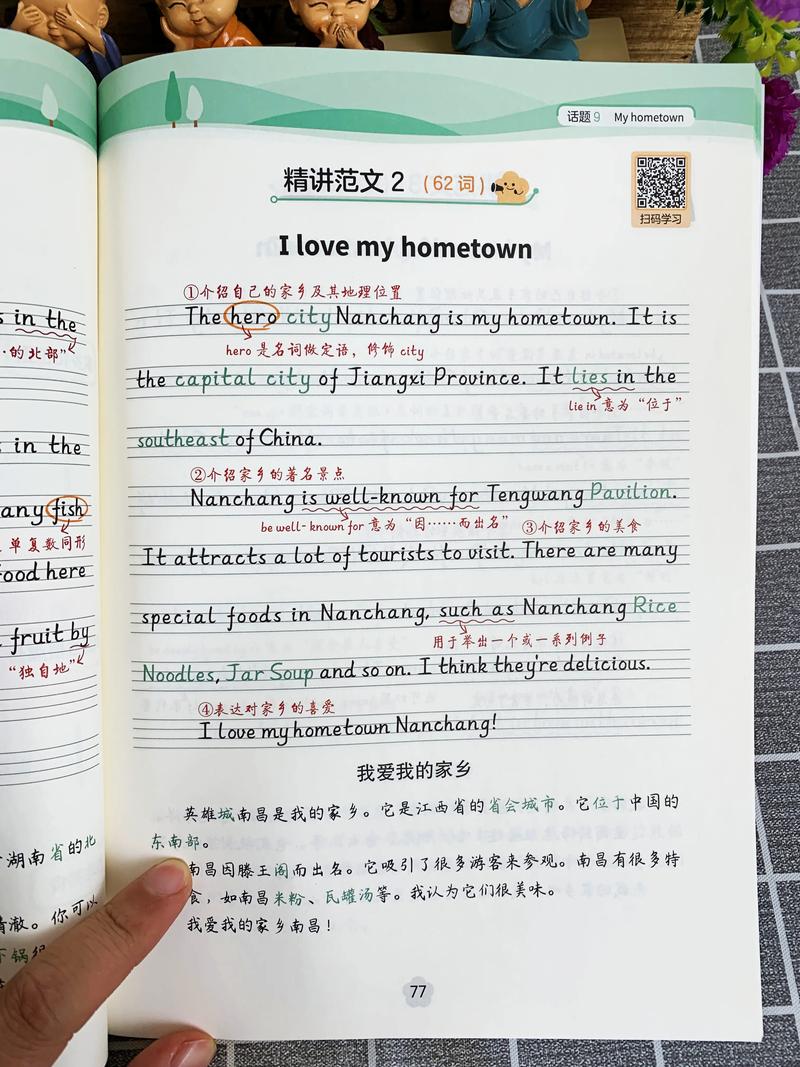 话题9 My hometown
精讲范文2 (62词)
扫码学习
I love my hometown
①介绍自己的家乡及其地理位置
The hero city Nanchang is my hometown. It is
hero 是名词做定语，修饰 city
the capital city of Jiangxi Province. It lies in the
lie in 意为“位于”
southeast of China.
②介绍家乡的著名景点
Nanchang is well-known for Tengwang Pavilion.
be well-known for 意为“因……而出名”
③介绍家乡的美食
It attracts a lot of tourists to visit. There are many
special foods in Nanchang, such as Nanchang Rice
用于举出一个或一系列例子
Noodles, Jar Soup and so on. I think they're delicious.
④表达对家乡的喜爱
I love my hometown Nanchang!
我爱我的家乡
英雄城南昌是我的家乡。它是江西省的省会城市。它位于中国的
东南部。
南昌因滕王阁而出名。它吸引了很多游客来参观。南昌有很多特
食，如南昌米粉、瓦罐汤等。我认为它们很美味。
我爱我的家乡南昌！
77
in the
的北部”
in the
any fish
单复数同形
food here
fruit by
“独自地”
湖南省的北
清澈。你可以